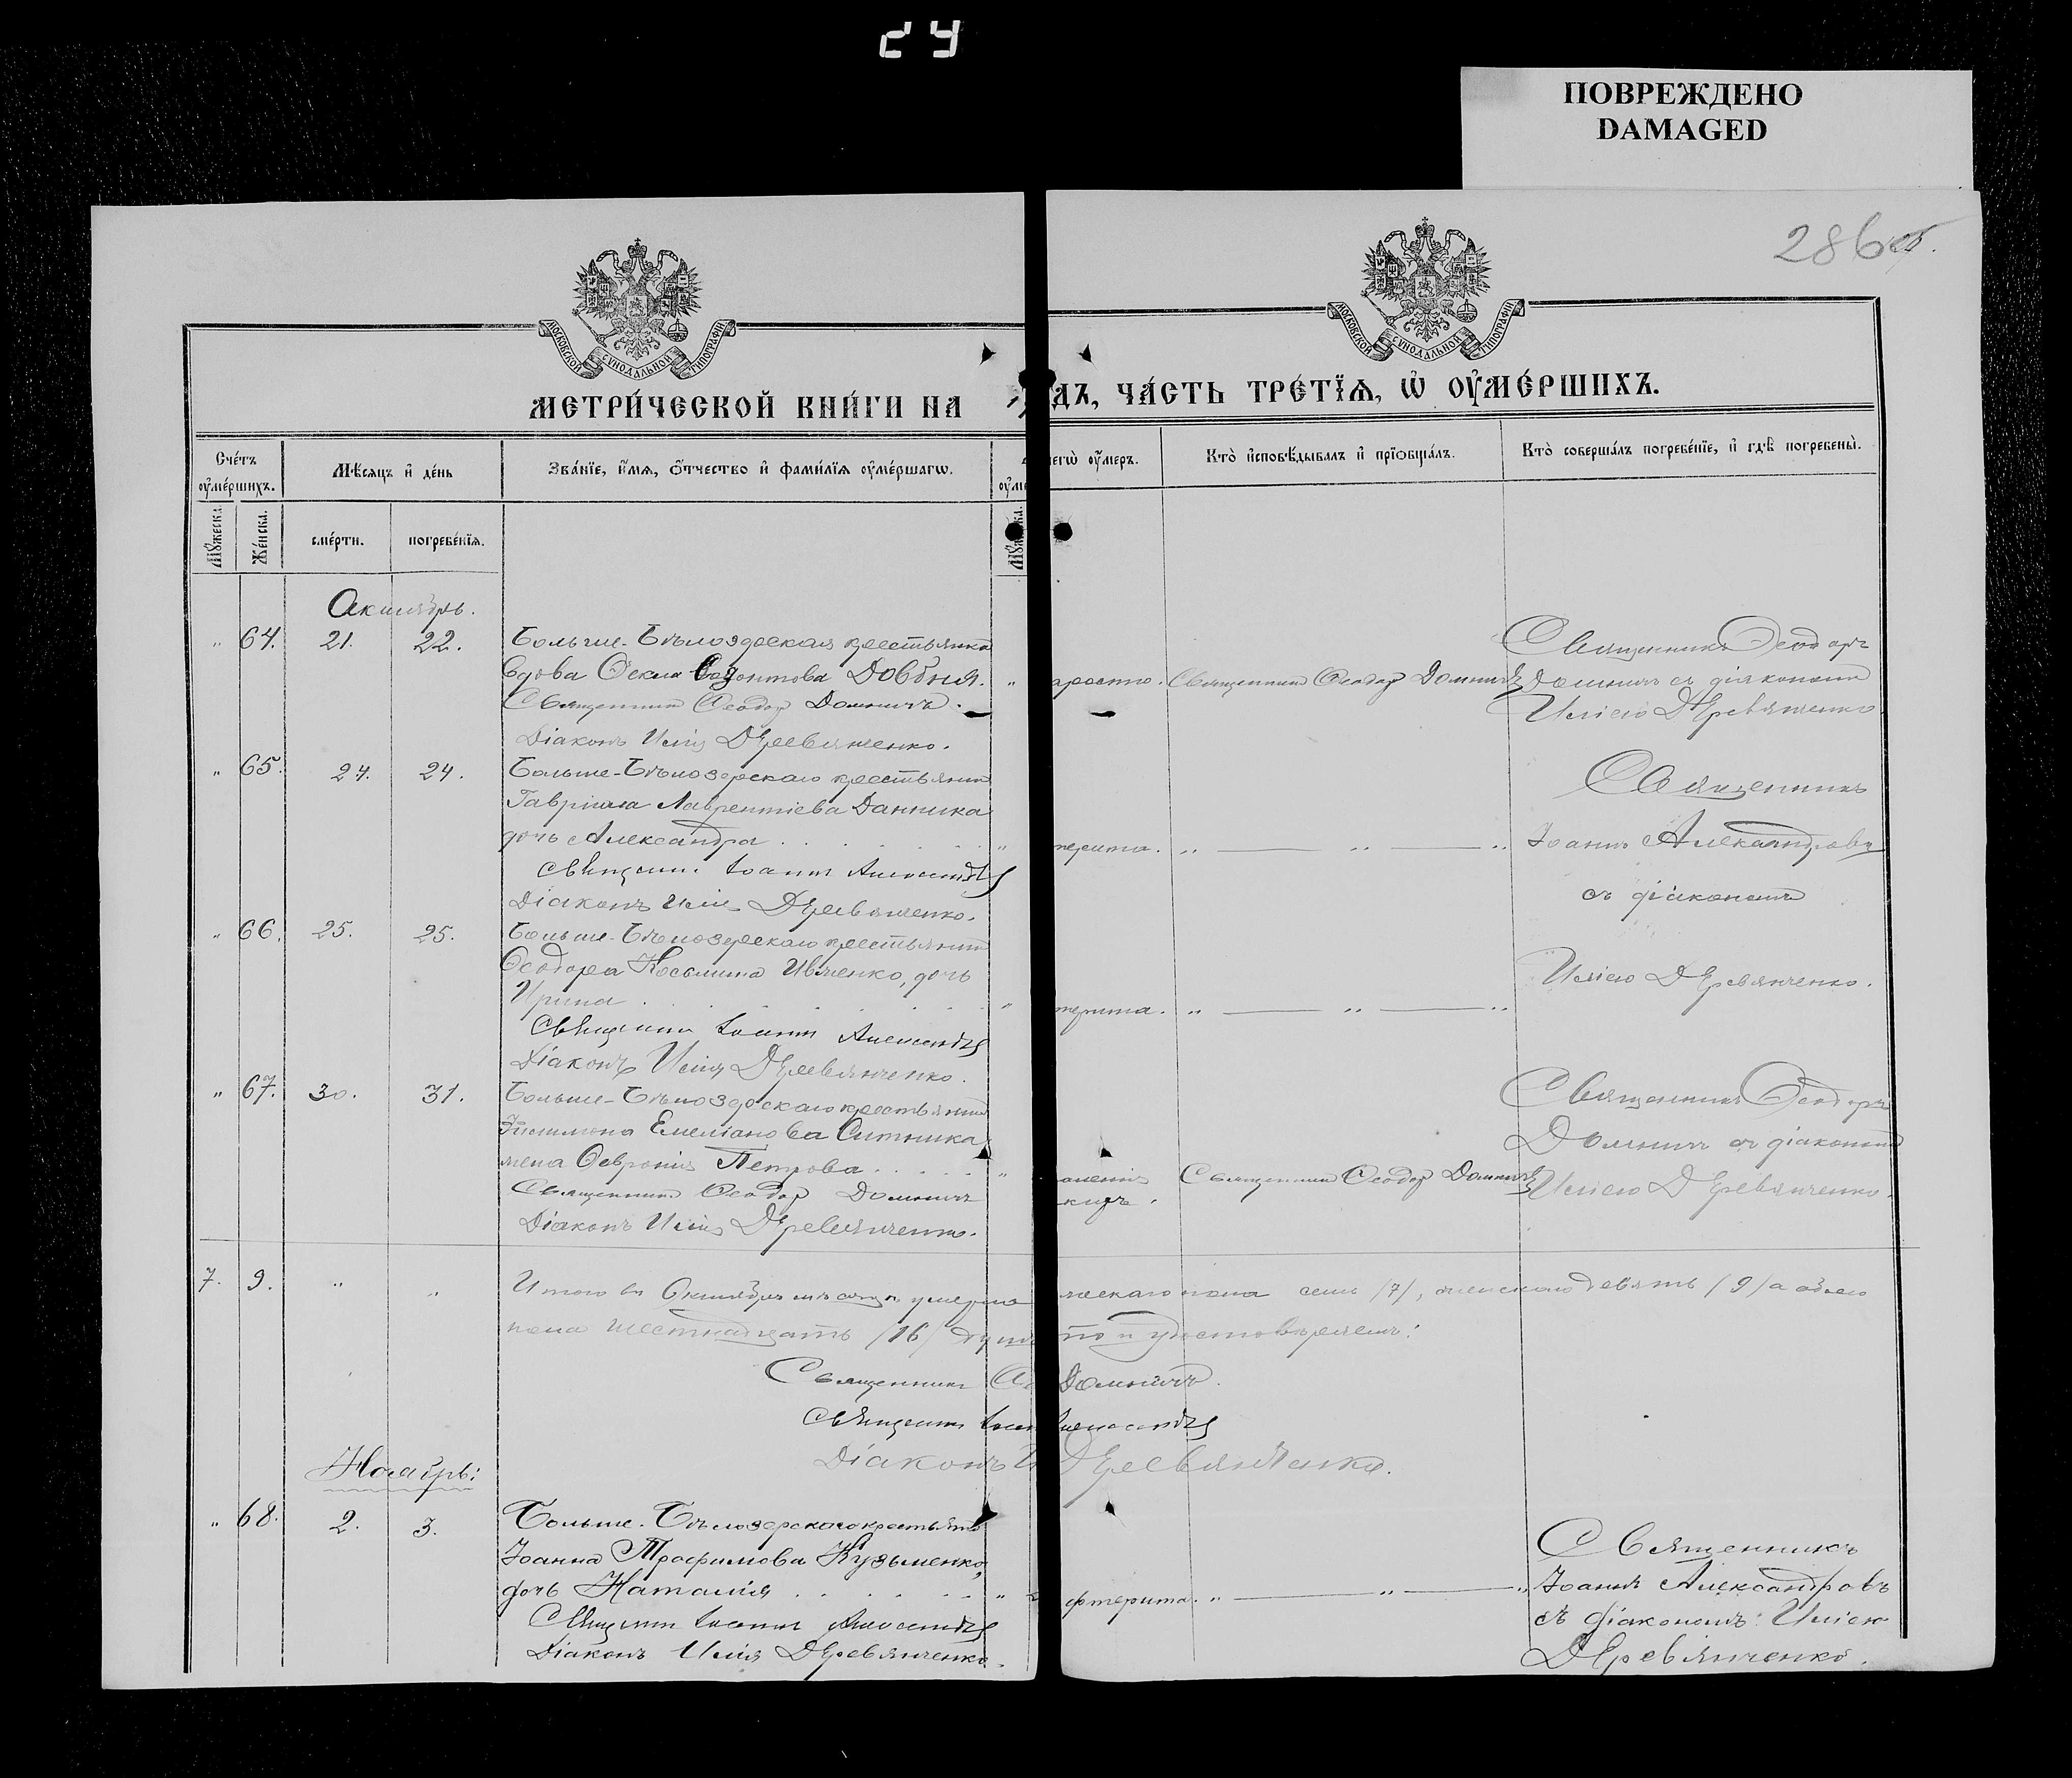 24
ПОВРЕЖДЕНО
DAMAGED
286
МОСКОВСКОЙ СѴНОДАЛЬНОЙ ТИПОГРАФІИ
МОСКОВСКОЙ СѴНОДАЛЬНОЙ ТИПОГРАФІИ
МЕТРИ́ЧЕСКОЙ КНИ́ГИ НА
ДЪ, ЧА́СТЬ ТРЕ́ТЇѦ, Ѡ҆ ОУ҆МЕ́РШИХЪ.
Сче́тъ оу҆ме́ршихъ.
Мѣ́сяцъ и҆ де́нь
Зва́нїе, и҆́мѧ, ѻ҆́тчество и҆ фами́лїѧ оу҆ме́ршагѡ.
чегѡ̀ оу҆́меръ.
Кто̀ и҆сповѣ́дывалъ и҆ прїѻбща́лъ.
Кто̀ соверша́лъ погребе́нїе, и҆ гдѣ̀ погребены̀.
Мꙋ́жеска.
Же́нска.
сме́рти.
погребе́нїѧ.
Октябрь.
" 64. 21. 22. Больше-Бѣлозерская крестьянка
вдова Ѳекла Довбня. "
Священникъ Ѳеодоръ Домничъ.
Діаконъ Илія Деревянченко.
Священникъ Ѳеодоръ Домничъ
Священникъ Ѳеодоръ
Домничъ съ діакономъ
Иліею Деревянченко
" 65. 24. 24. Больше-Бѣлозерскаго крестьянина
Гавріила Лаврентіева Данника
дочь Александра "
Священникъ Іоаннъ Александровъ
Діаконъ Илія Деревянченко.
терита. " "
Священникъ
Іоаннъ Александровъ
съ діакономъ
Иліею Деревянченко.
" 66. 25. 25. Больше-Бѣлозерскаго крестьянина
Ѳеодора Косьмина Ивченко, дочь
Ирина "
Священникъ Іоаннъ Александровъ
Діаконъ Илія Деревянченко.
терита. " "
" 67. 30. 31. Больше-Бѣлозерскаго крестьянина
Емеліанова Ситника
жена Ѳевронія Петрова "
Священникъ Ѳеодоръ Домничъ
Діаконъ Илія Деревянченко.
Священникъ Ѳеодоръ Домничъ
Священникъ Ѳеодоръ
Домничъ съ діакономъ
Иліею Деревянченко.
7. 9. " " Итого въ Октябрѣ мѣсяцѣ умерло
жескаго пола семь /7/, женскаго девять /9/ а обоего
пола шестнадцать /16/ душъ
то и удостовѣряемъ:
Священникъ Домничъ.
Священникъ Іоан Александровъ
Діаконъ И Деревянченко.
Ноябрь:
" 68. 2. 3. Больше-Бѣлозерскаго крестьянина
Іоанна Трофимова Кузьменко,
дочь Наталія "
Священникъ Іоаннъ Александровъ
Діаконъ Илія Деревянченко.
фтерита. " "
Священникъ
Іоаннъ Александровъ
съ діакономъ: Иліею
Деревянченко.